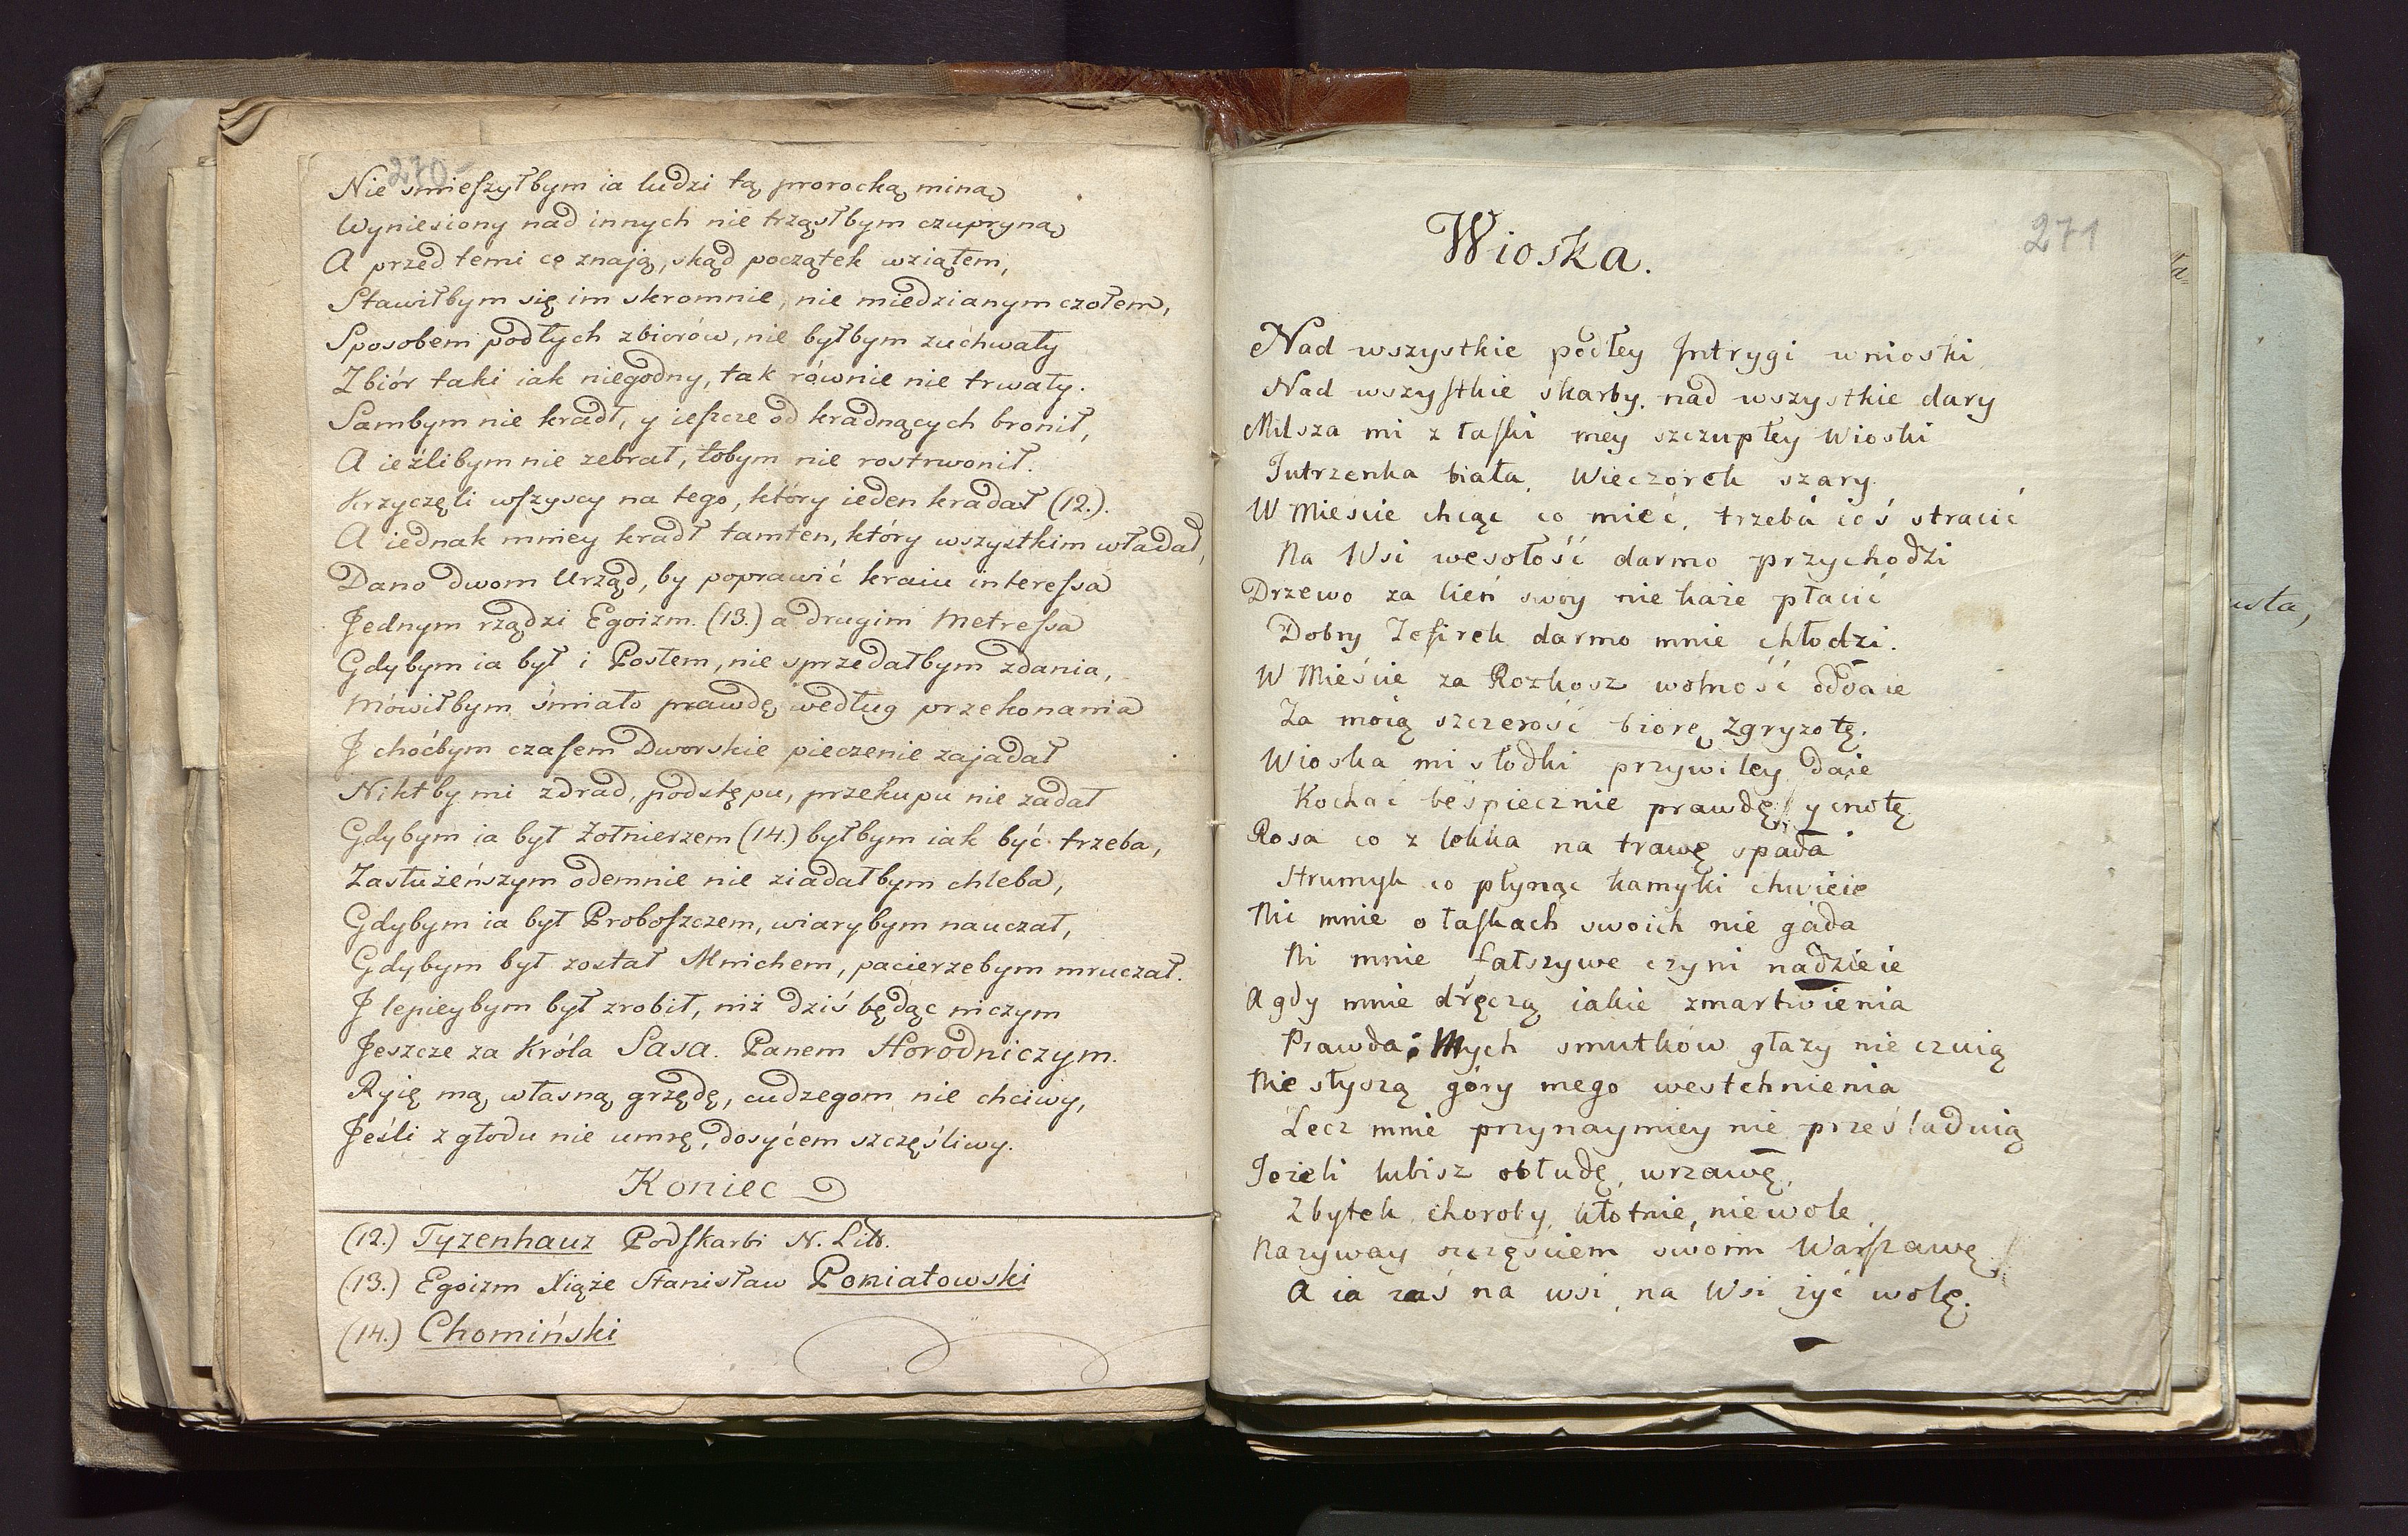 270
Nie smieſzyłbym ia ludzi tą prorocką miną
Wyniesiony nad innych nie trząsłbym czupryną
A przed temi co znają, skąd początek wziąłem,
Stawiłbym się im skromnie, nie miedzianym czołem,
Sposobem podłych zbiorów, nie byłbym zuchwały
Zbiór taki iak niegodny, tak równie nie trwały.
Sambym nie kradł, y ieſzcze od kradnących bronił,
A ieźlibym nie zebrał, tobym nie rostrwonił.
Krzyczęli wſzyscy na tego, który ieden kradał (12.).
A iednak mniey kradł tamten, który wszystkim władał,
Dano dwom Urząd, by poprawić kraiu intereſsa
Jednym rządzi Egoizm. (13.) a drugim Metreſsa
Gdybym ia był i Posłem, nie sprzedałbym zdania,
Mówiłbym śmiało prawdę według przekonania
J choćbym czaſem Dworskie pieczenie zajadał
Niktby mi zdrad, podstępu, przekupu nie zadał
Gdybym ia był Żołnierzem (14.) byłbym iak być trzeba,
Zasłużeńszym odemnie nie ziadałbym chleba,
Gdybym ia był Proboſzczem, wiarybym nauczał,
Gdybym był został Mnichem, pacierzebym mruczał.
J lepieybym był zrobił, niż dziś będąc niczym
Jeszcze za Króla Sasa. Panem Horodniczym.
Ryię mą własną grzędę, cudzegom nie chciwy,
Jeśli z głodu nie umrę, dosyćem szczęśliwy.
Koniec
(12.) Tyzenhauz Podſkarbi N. Litt.
(13.) Egoizm Xiąże Stanisław Poniatowski
(14.) Chomiński
271
Wioska.
Nad wszystkie podłey Jntrygi wnioski
Nad wszyſtkie skarby, nad wszystkie dary
Milsza mi z łaſki mey szczupłey Wioski
Jutrzenka biała, Wieczorek szary
W Mieście chcąc co mieć, trzeba coś stracić
Na Wsi wesołość darmo przychodzi
Drzewo za cień swoy nie każe płacić
Dobry Zefirek darmo mnie chłodzi.
W Mieście za Rozkosz wolność oddaie
Za moią szczerość biorę zgryzotę.
Wioska mi słodki przywiley daie
Kochać beśpiecznie prawdę, y cnotę
Rosa co z lekka na trawę spada
Strumyk co płynąc kamyki chwieie
Ni mnie o łaſkach swoich nie gada
Ni mnie fałszywe czyni nadzieie
A gdy mnie dręczą iakie zmartwienia
Prawda; Mych smutków głazy nie czuią
Nie słyszą góry mego westchnienia
Lecz mnie przynaymiey nie prześladuią
Jeżeli lubisz obłudę, wrzawę,
Zbytek, choroby, kłotnie, niewole,
Nazyway szczęściem swoim Warſzawę
A ia zaś na wsi, na Wsi żyć wolę.